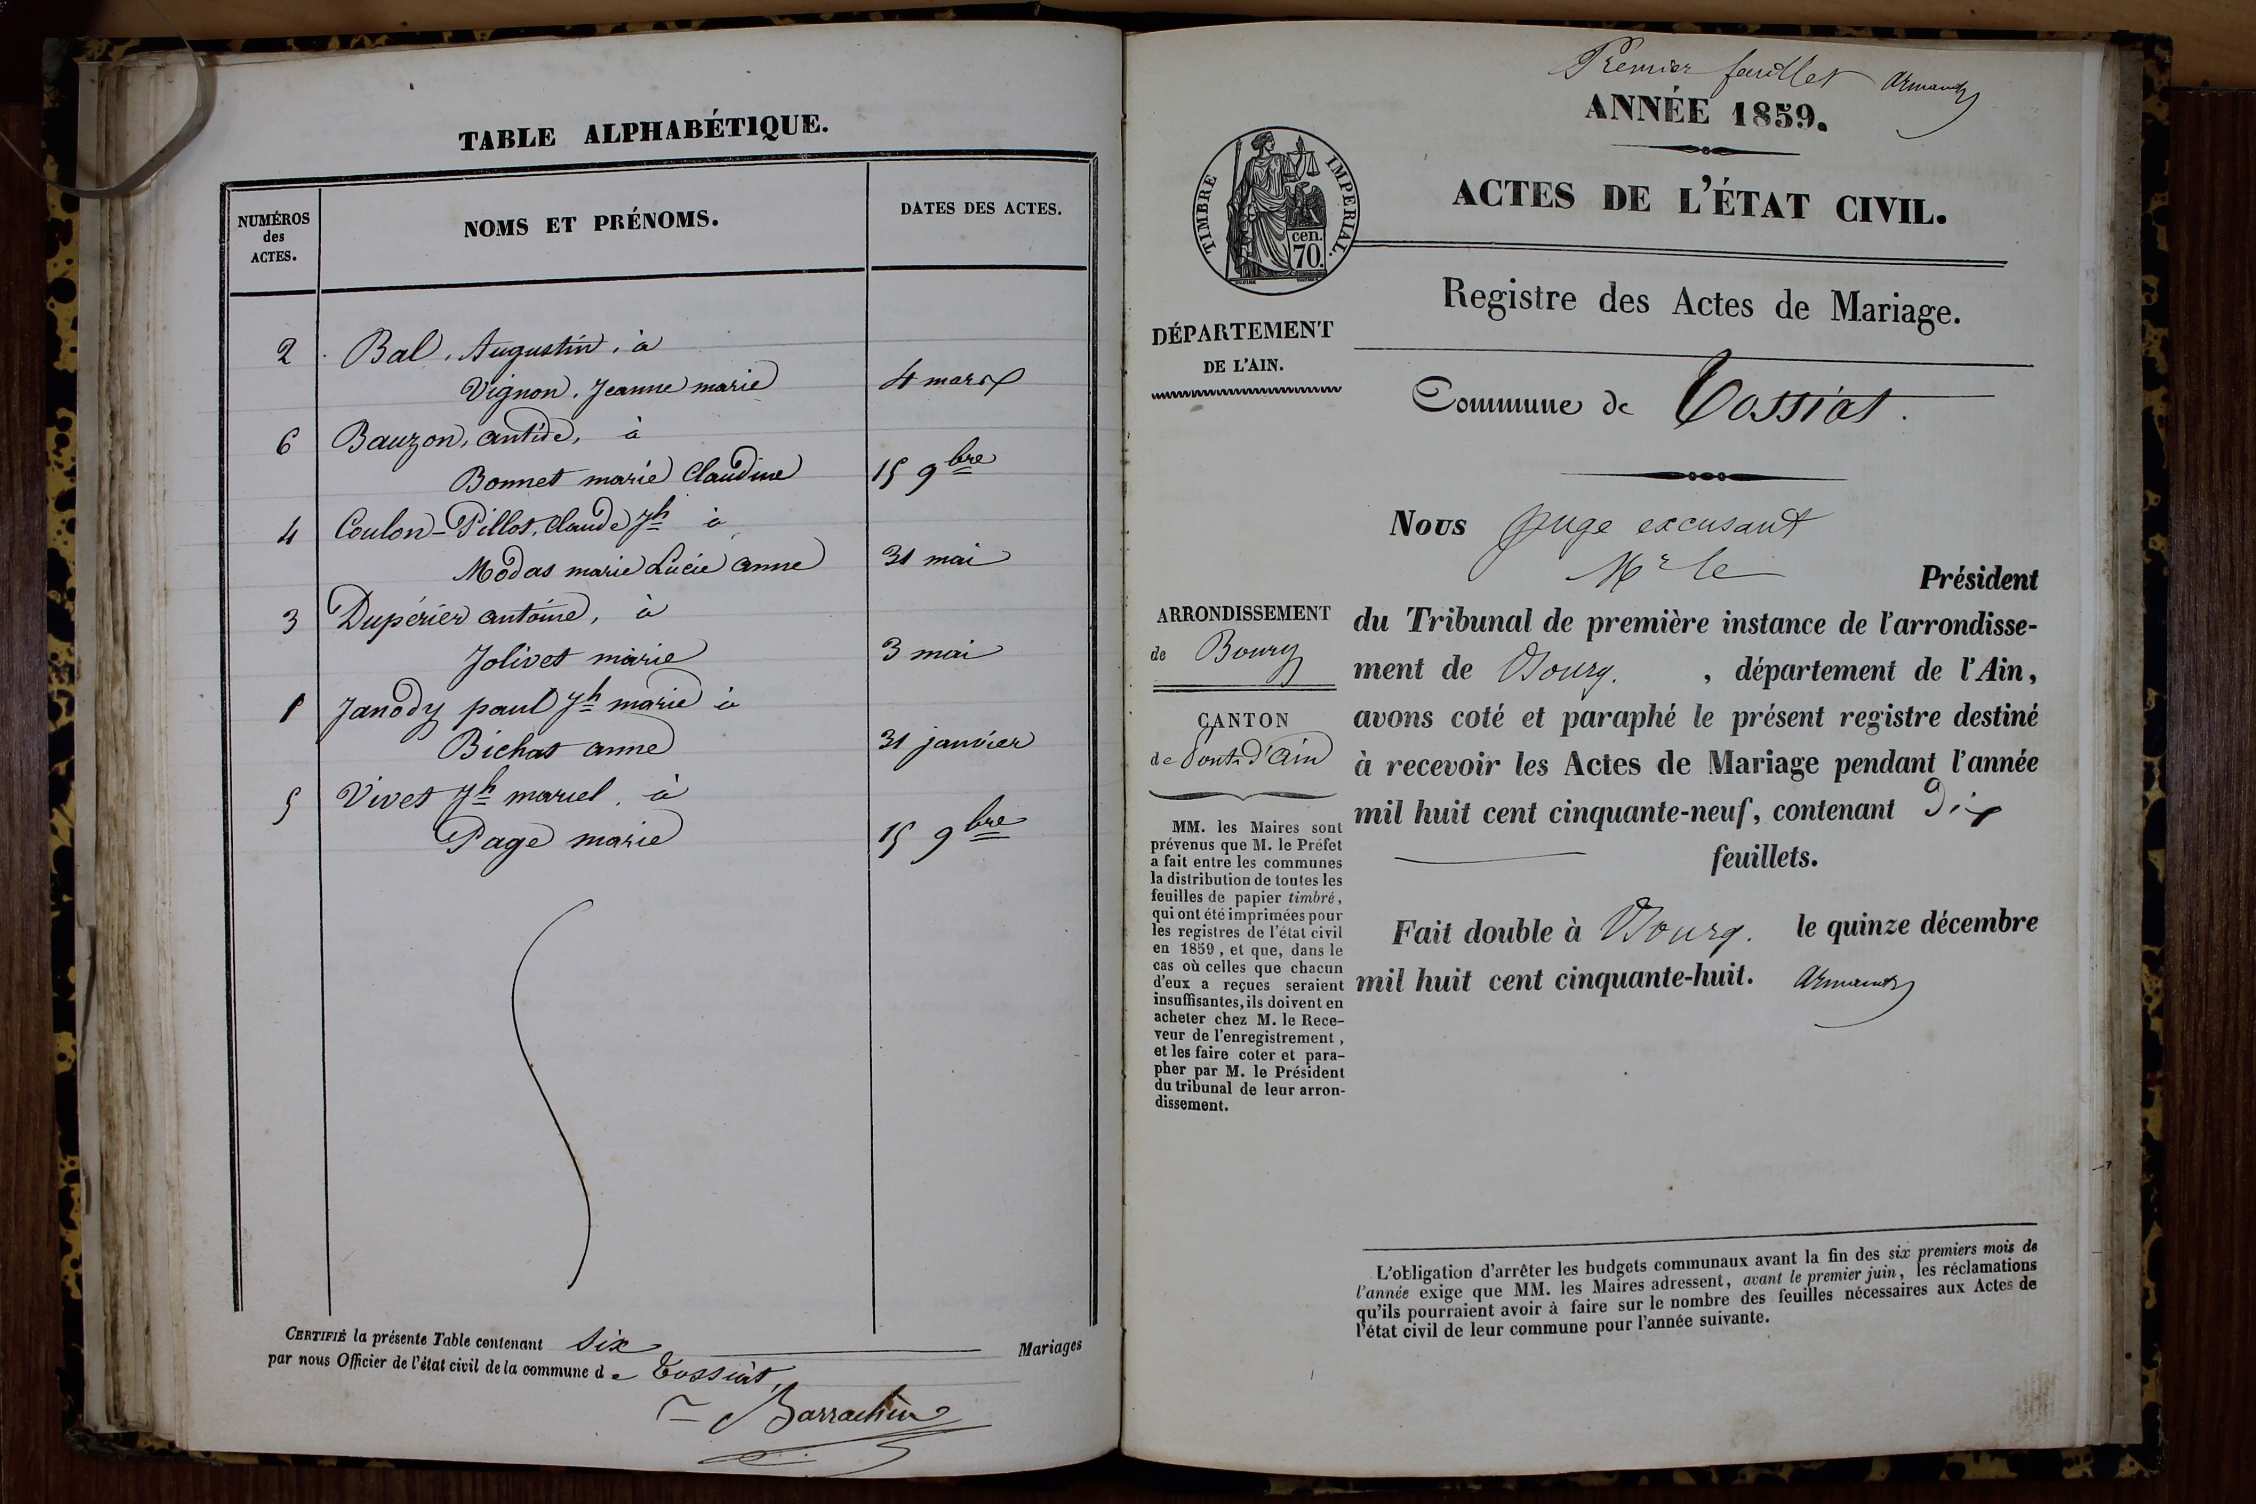 TABLE ALPHABÉTIQUE.
NUMÉROS
des
ACTES.
NOMS ET PRÉNOMS.
DATES DES ACTES.
2 Bal, Augustin, à
Vignon, Jeanne marie 4 mars
6 Bauzon, antide, à
Bonnet marie Claudine 15 9bre
4 Coulon-Pillot, Claude Jh à
Modas marie Lucie anne 31 mai
3 Dupérier antoine, à
Jolivet marie 3 mai
1 Janody paul Jh marie à
Bichat anne 31 janvier
5 Vivet Jh mariel, à
Page marie 15 9bre
CERTIFIÉ la présente Table contenant six Mariages
par nous Officier de l'état civil de la commune de Tossiat,
Barrachin
Premier feuillet Armand
ANNÉE 1859.
ACTES DE L'ÉTAT CIVIL.
TIMBRE IMPERIAL.
cen.
70.
Registre des Actes de Mariage.
DÉPARTEMENT
DE L'AIN.
Commune de Tossiat.
Nous Juge excusant
Mr le Président
du Tribunal de première instance de l'arrondisse-
ment de Bourg. , département de l'Ain,
avons coté et paraphé le présent registre destiné
à recevoir les Actes de Mariage pendant l'année
mil huit cent cinquante-neuf, contenant Dix
feuillets.
Fait double à Bourg. le quinze décembre
mil huit cent cinquante-huit. Armand
ARRONDISSEMENT
de Bourg
CANTON
de Pont d'Ain
MM. les Maires sont
prévenus que M. le Préfet
a fait entre les communes
la distribution de toutes les
feuilles de papier timbré,
qui ont été imprimées pour
les registres de l'état civil
en 1859, et que, dans le
cas où celles que chacun
d'eux a reçues seraient
insuffisantes, ils doivent en
acheter chez M. le Rece-
veur de l'enregistrement,
et les faire coter et para-
pher par M. le Président
du tribunal de leur arron-
dissement.
L'obligation d'arrêter les budgets communaux avant la fin des six premiers mois de
l'année exige que MM. les Maires adressent, avant le premier juin, les réclamations
qu'ils pourraient avoir à faire sur le nombre des feuilles nécessaires aux Actes de
l'état civil de leur commune pour l'année suivante.